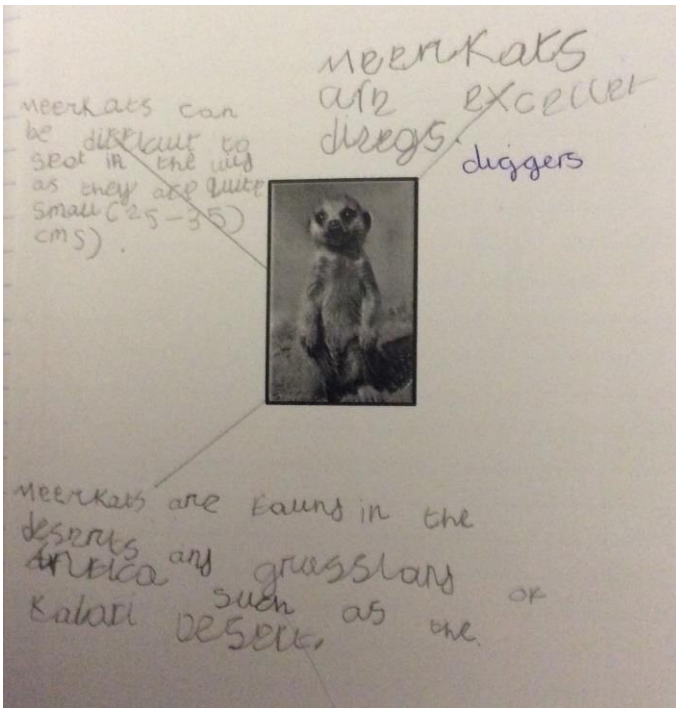 meerkats can
be difficult to
seot in the wild
as they are quite
small (25-35)
cms).
meerkats
are excellet
diregs.
diggers
meerkats are faund in the
deserts and grassland of
Africa such as the
Kalari Desert.